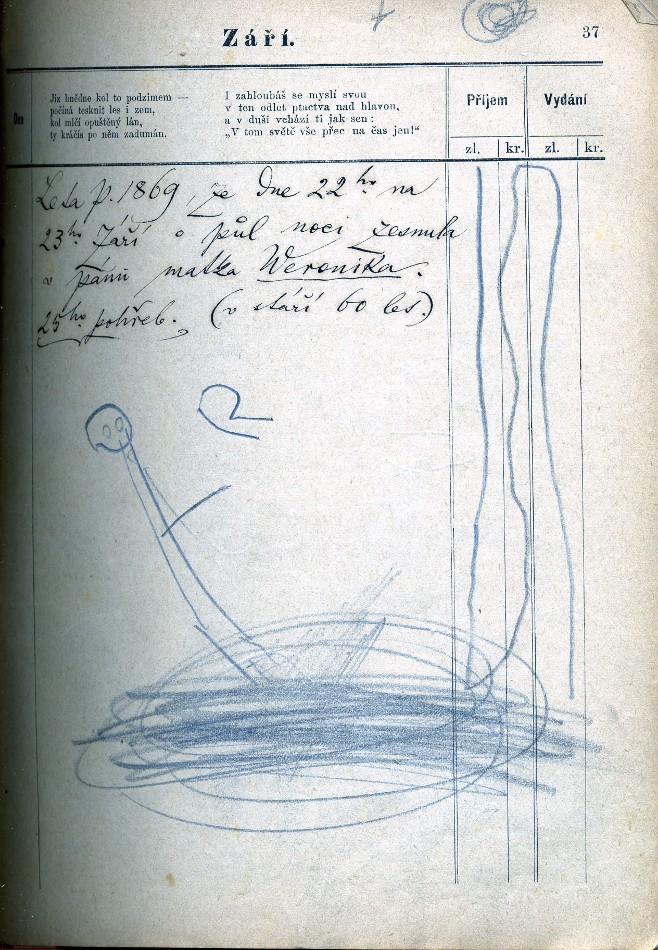 Září.
37
Den
Již hnědne kol to podzimem —
počíná teskniť les i zem,
kol mlčí opuštěný lán,
ty kráčíš po něm zadumán.
I zahloubáš se myslí svou
v ten odlet ptactva nad hlavou,
a v duši vchází ti jak sen:
„V tom světě vše přec na čas jen!“
Příjem
Vydání
zl.
kr.
zl.
kr.
Leta p. 1869, ze dne 22ho na
23ho Září o půl noci zesnula
v pánu matka Weronika.
25ho pohřeb. (v stáří 60 let.)